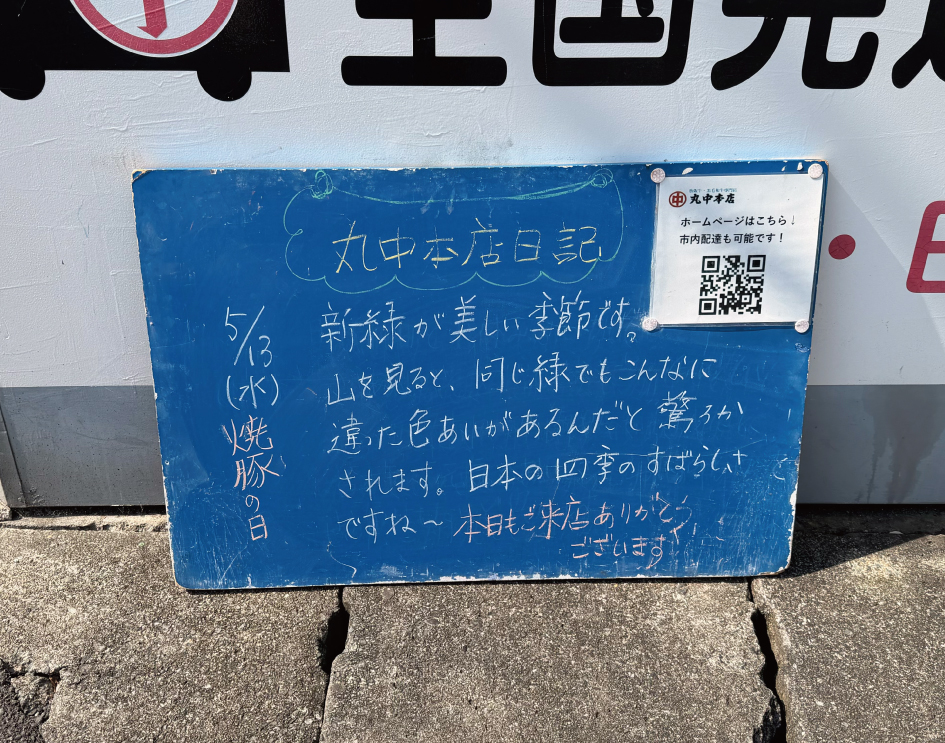 全国発送
丸中本店
ホームページはこちら↓
市内配達も可能です！
丸中本店日記
5/13
(水)
焼豚の日
新緑が美しい季節です。
山を見ると、同じ緑でもこんなに
違った色あいがあるんだと驚ろか
されます。日本の四季のすばらしさ
ですね〜 本日もご来店ありがとう
ございます